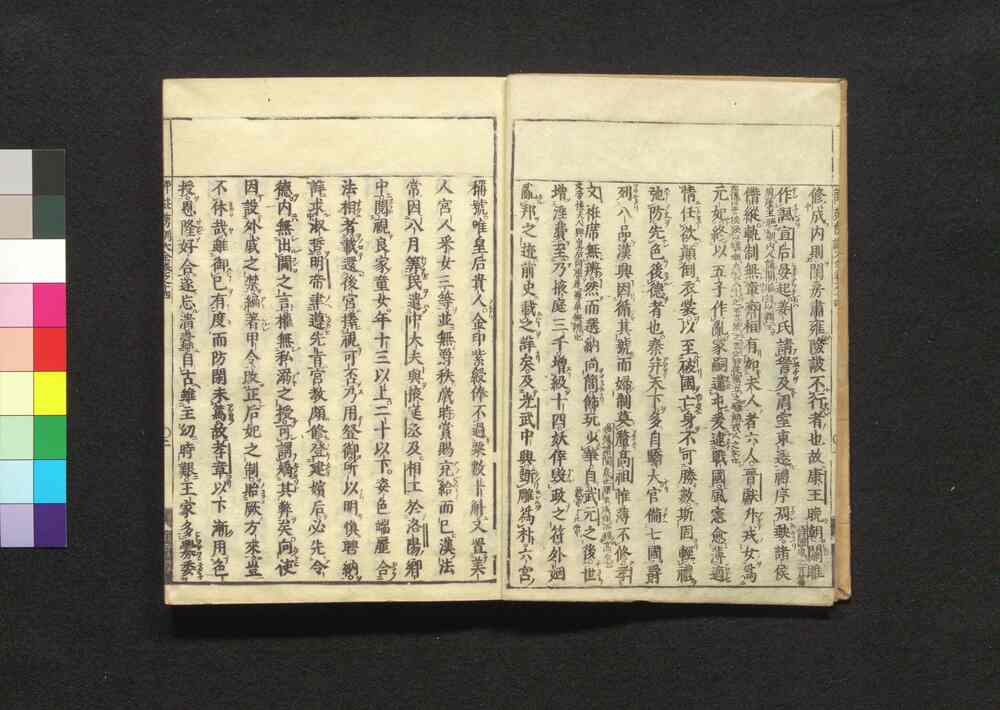 修成内則閨房肅雍險謁不行者也故康王晩朝關雎
作諷宣后晏起姜氏請愆及周室東遷禮序凋缺諸侯
僭縱軌制無章齊桓有如夫人者六人晉獻升戎女爲
元妃終以五子作亂冢嗣遘屯爰逮戰國風憲愈薄適
情任欲顛倒衣裳以至破國亡身不可勝數斯固輕禮
弛防先色後德者也秦并天下多自驕大宮備七國爵
列八品漢興因循其號而婦制莫釐高祖帷薄不修孝
文袵席無辨然而選納尚簡飾玩少華自武元之後世
增淫費至乃掖庭三千增級十四妖倖毀政之符外姻
亂邦之迹前史載之詳矣及光武中興斲雕爲朴六宮
稱號唯皇后貴人金印紫綬俸不過粟數十斛又置美
人宮人采女三等並無爵秩歲時賞賜充給而已漢法
常因八月筭民遣中大夫與掖庭丞及相工於洛陽鄉
中閲視良家童女年十三以上二十以下姿色端麗合
法相者載還後宮擇視可否乃用登御所以明愼聘納
詳求淑哲明帝聿遵先旨宮教頗修登建嬪后必先令
德内無出閫之言權無私溺之授可謂矯其弊矣向使
因設外戚之禁編著甲令改正后妃之制貽厥方來豈
不休哉雖御己有度而防閑未篤故孝章以下漸用色
授恩隆好合遂忘淄蠹自古雖主幼時艱王家多釁委